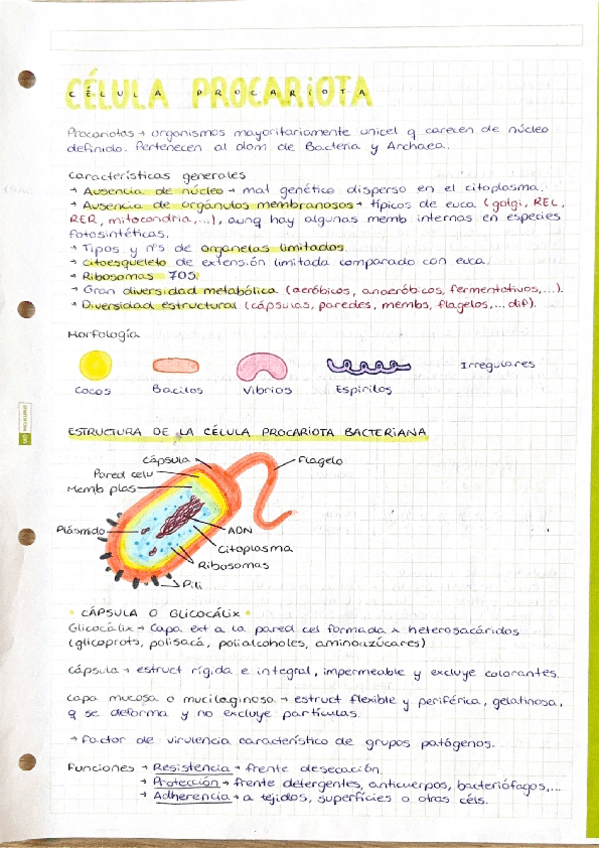 CÉLULA PROCARIOTA
Procariotas → organismos mayoritariamente unicel q carecen de núcleo
definido. Pertenecen al dom de Bacteria y Archaea.
Características generales
→ Ausencia de núcleo → mat genético disperso en el citoplasma.
→ Ausencia de orgánulos membranosos → típicos de euca (golgi, REL,
RER, mitocondria,...), aunq hay algunas memb internas en especies
fotosintéticas.
→ Tipos y nºs de organelas limitados.
→ Citoesqueleto de extensión limitada comparado con euca.
→ Ribosomas 70S.
→ Gran diversidad metabólica (aeróbicos, anaeróbicos, fermentativos,...).
→ Diversidad estructural (cápsulas, paredes, membs, flagelos,... dif).
Morfología
Cocos
Bacilos
Vibrios
Espirilos
Irregulares
ESTRUCTURA DE LA CÉLULA PROCARIOTA BACTERIANA
Cápsula
Flagelo
Pared celu
Memb plas
Plásmido
ADN
Citoplasma
Ribosomas
Pili
• CÁPSULA O GLICOCÁLIX •
Glicocálix → Capa ext a la pared cel formada x heterosacáridos
(glicoprots, polisacá, polialcoholes, aminoazúcares)
Cápsula → estruct rígida e integral, impermeable y excluye colorantes.
Capa mucosa o mucilaginosa → estruct flexible y periférica, gelatinosa,
q se deforma y no excluye partículas.
→ Factor de virulencia característico de grupos patógenos.
Funciones → Resistencia → frente desecación.
→ Protección → frente detergentes, anticuerpos, bacteriófagos,...
→ Adherencia → a tejidos, superficies o otras céls.